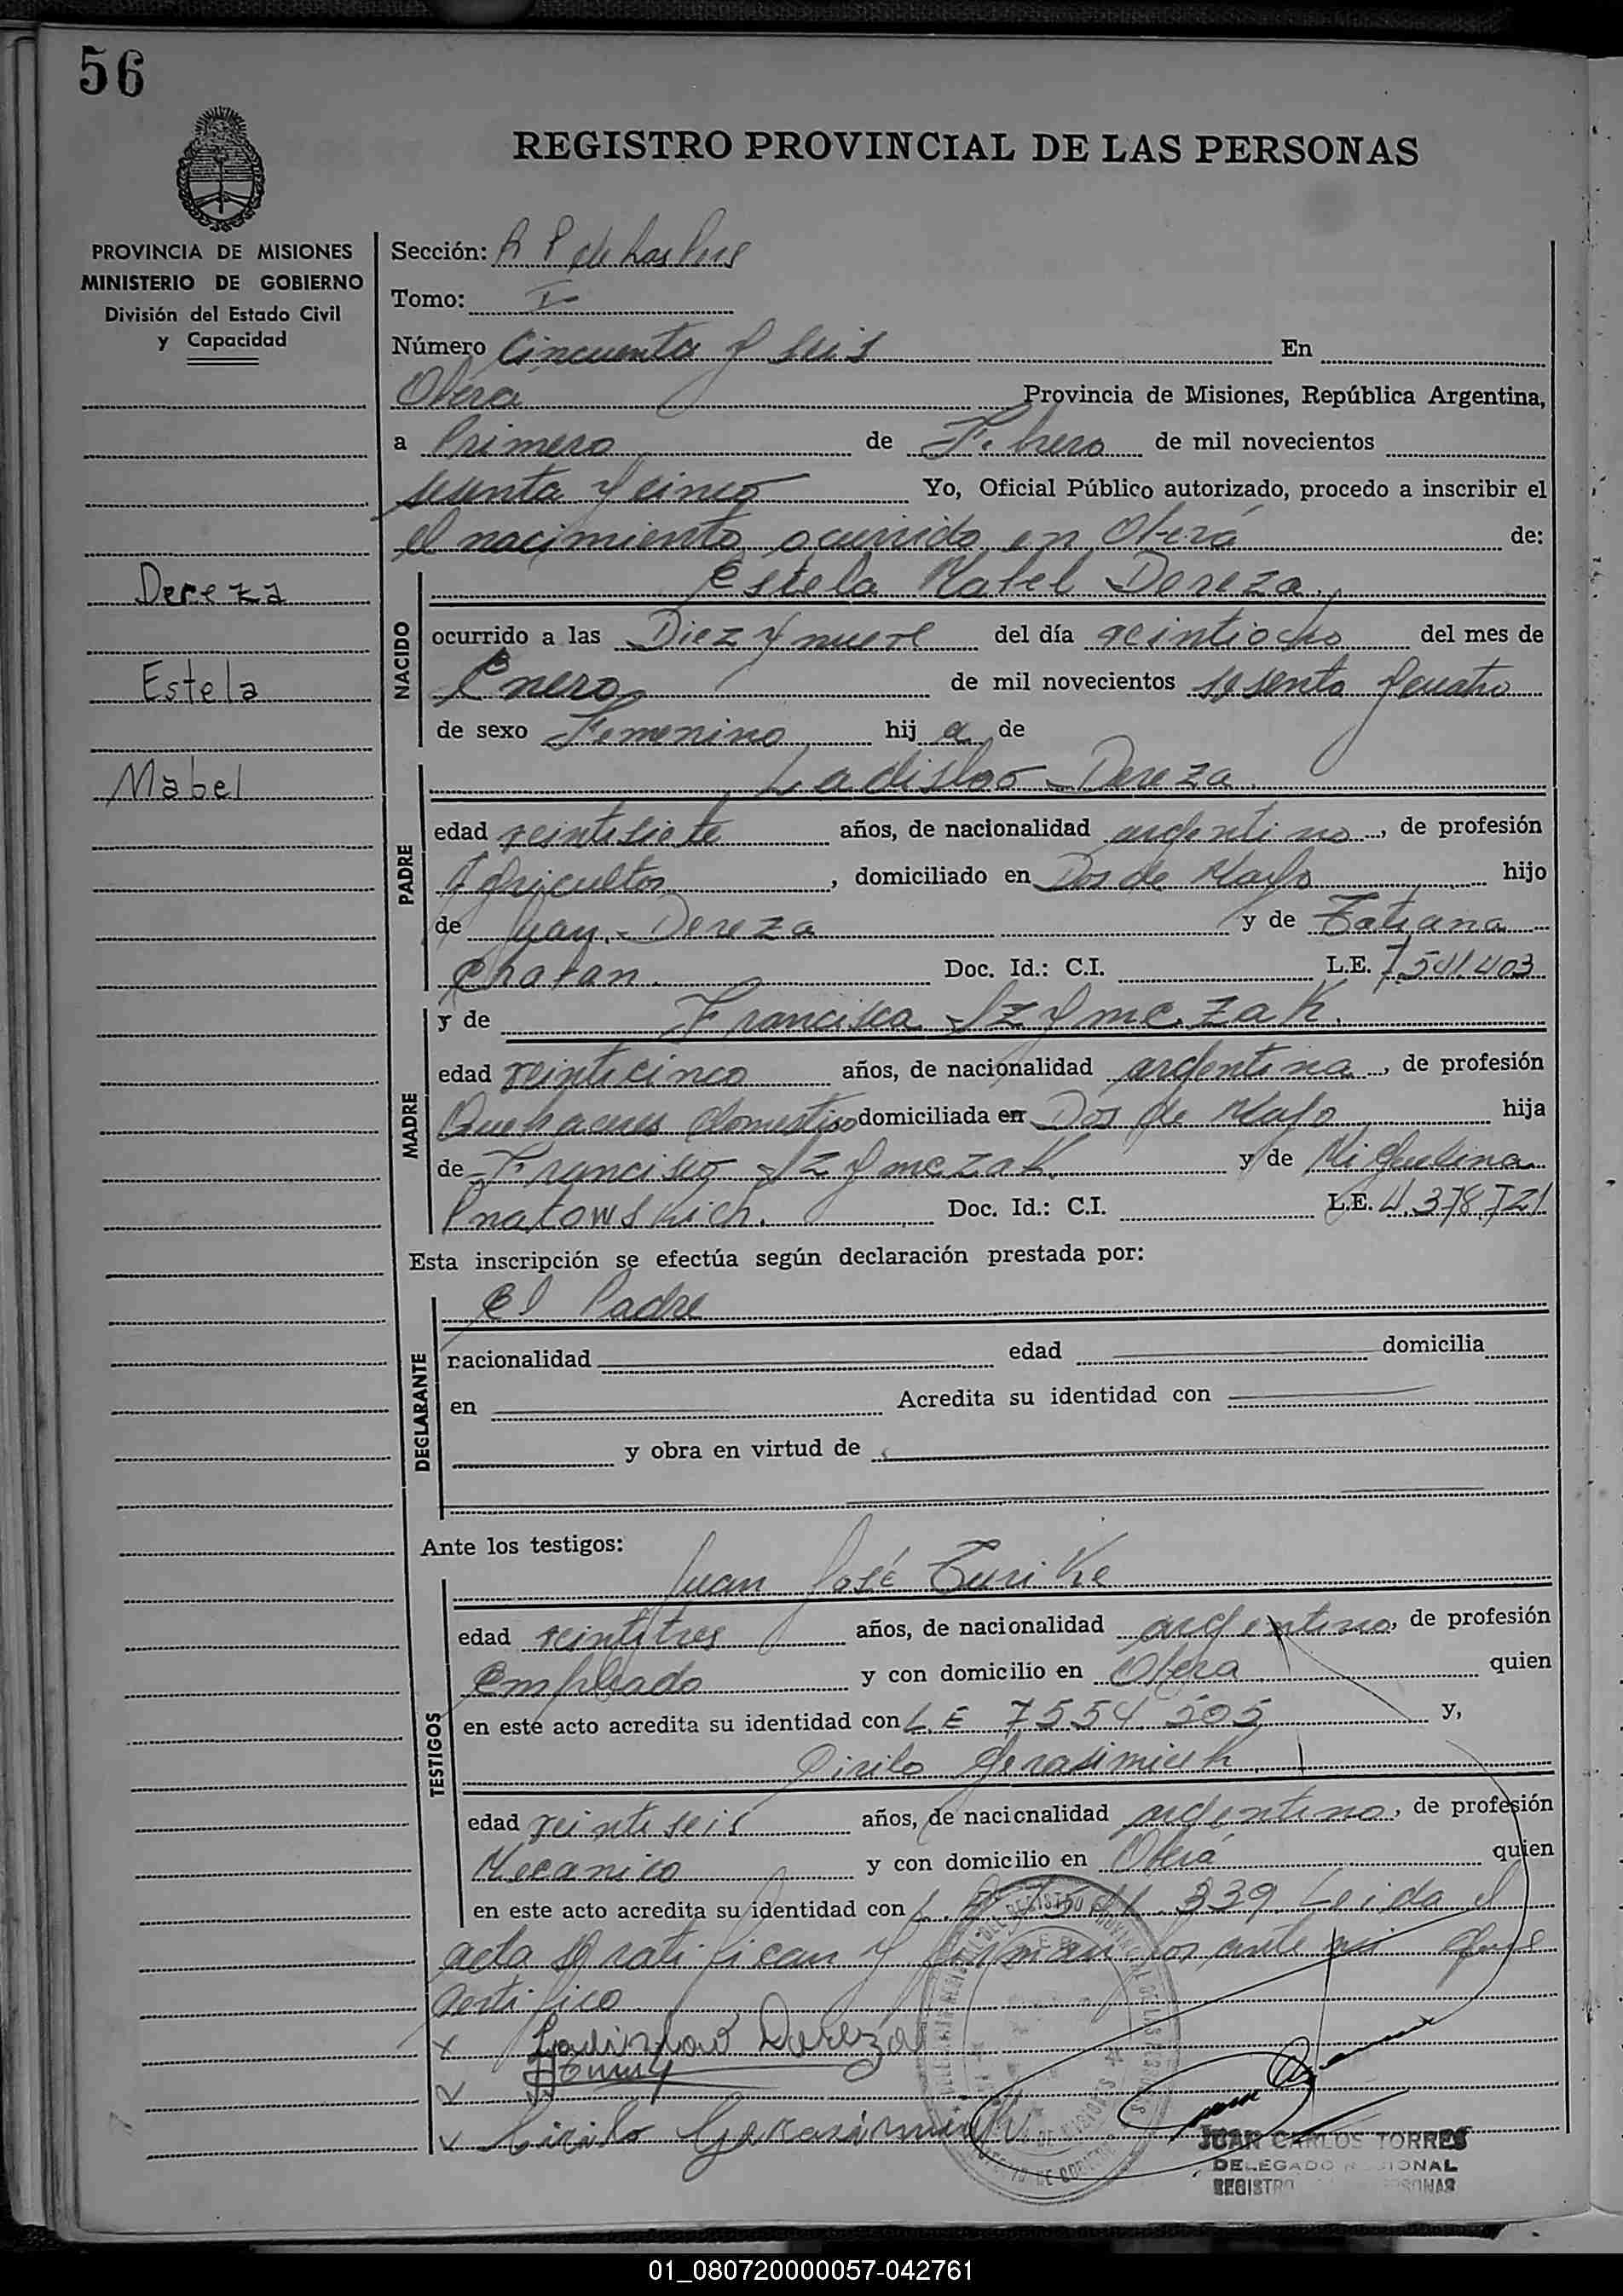 56
REGISTRO PROVINCIAL DE LAS PERSONAS
PROVINCIA DE MISIONES
MINISTERIO DE GOBIERNO
División del Estado Civil
y Capacidad
Dereza
Estela
Mabel
Sección: R. P. de las Pers
Tomo: I
Número Cincuenta y seis En
Oberá Provincia de Misiones, República Argentina,
a Primero de Febrero de mil novecientos
sesenta y cinco Yo, Oficial Público autorizado, procedo a inscribir el
el nacimiento ocurrido en Oberá de:
NACIDO
Estela Mabel Dereza.
ocurrido a las Diez y nueve del día veintiocho del mes de
Enero de mil novecientos sesenta y cuatro
de sexo Femenino hij a de
PADRE
Ladislao Dereza
edad veintisiete años, de nacionalidad argentino, de profesión
Agricultor, domiciliado en Dos de Mayo hijo
de Juan Dereza y de Tatiana
Doc. Id.: C.I. L.E. 7.541.403
MADRE
y de Francisca Szymczak.
edad veinticinco años, de nacionalidad argentina, de profesión
Quehaceres domestico domiciliada en Dos de Mayo hija
de Francisco Szymczak y de Miguelina
Doc. Id.: C.I. L.E. 4.378.721
Esta inscripción se efectúa según declaración prestada por:
DECLARANTE
El Padre
nacionalidad edad domicilia
en Acredita su identidad con
y obra en virtud de
Ante los testigos:
TESTIGOS
Juan José
edad veintitres años, de nacionalidad argentino, de profesión
Empleado y con domicilio en Obera quien
en este acto acredita su identidad con L.E 7554.505 y,
Cirilo Gerasimiuk
edad veintiseis años, de nacionalidad argentino, de profesión
Mecanico y con domicilio en Oberá quien
en este acto acredita su identidad con L. 339 Leida el
acta se ratifican y firman por ante mi que
certifico
x Ladislao Dereza
x
x Cirilo Gerasimiuk
JUAN CARLOS TORRES
DELEGADO
REGISTRO
01_080720000057-042761